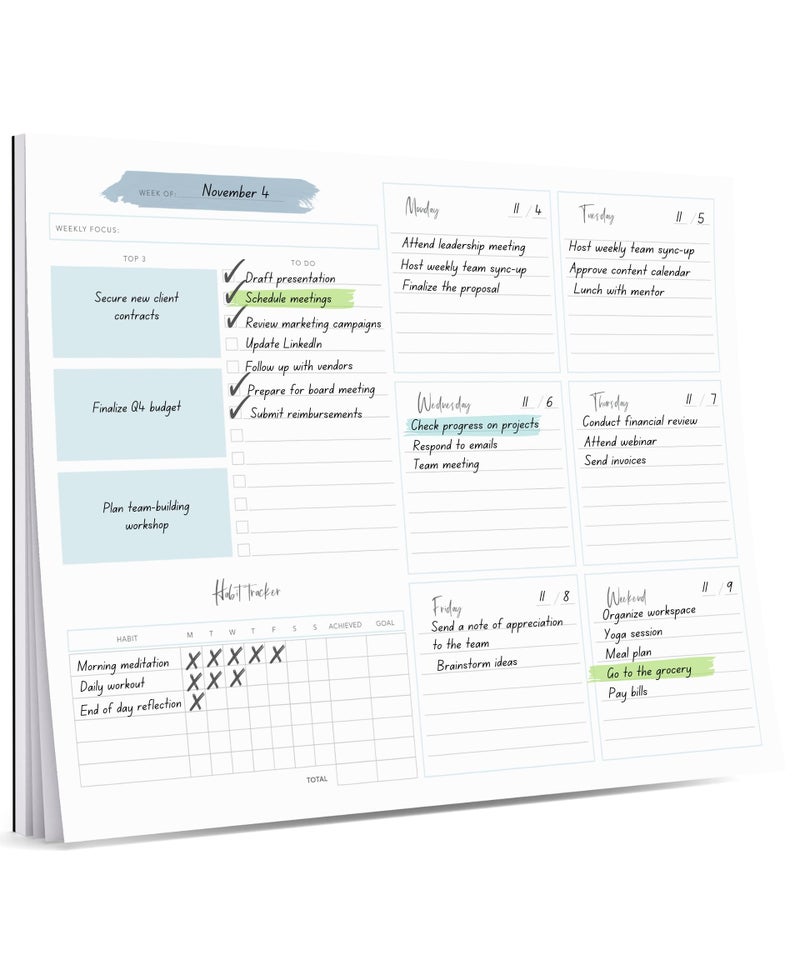 WEEK OF: November 4
WEEKLY FOCUS:
TOP 3
Secure new client
contracts
Finalize Q4 budget
Plan team-building
workshop
TO DO
Draft presentation
Schedule meetings
Review marketing campaigns
Update LinkedIn
Follow up with vendors
Prepare for board meeting
Submit reimbursements
Habit Tracker
HABIT M T W T F S S ACHIEVED GOAL
Morning meditation X X X X X
Daily workout X X X
End of day reflection X
TOTAL
Monday 11 / 4
Attend leadership meeting
Host weekly team sync-up
Finalize the proposal
Tuesday 11 / 5
Host weekly team sync-up
Approve content calendar
Lunch with mentor
Wednesday 11 / 6
Check progress on projects
Respond to emails
Team meeting
Thursday 11 / 7
Conduct financial review
Attend webinar
Send invoices
Friday 11 / 8
Send a note of appreciation
to the team
Brainstorm ideas
Weekend 11 / 9
Organize workspace
Yoga session
Meal plan
Go to the grocery
Pay bills